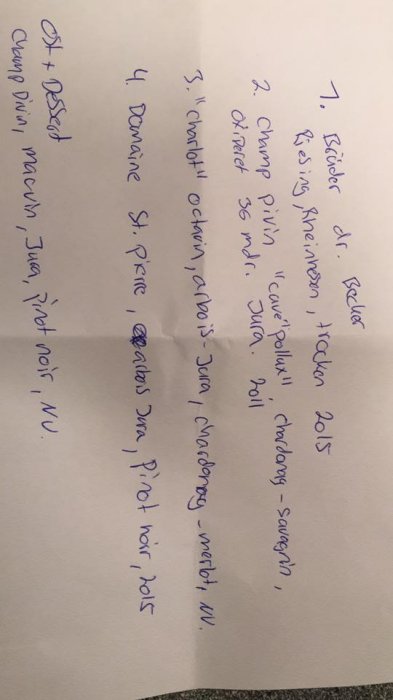 1. Brüder dr. Becker
Riesling, Rheinhessen, trocken 2015
2. Champ Divin, "cuvé" pollux", chardonay-savagnin,
Oxideret 36 mdr. Jura. 2011
3. "Charlot" octavin, arbois-Jura, chardonnay-merlot, NV.
4. Domaine St. Pierre, arbois Jura, Pinot noir, 2015
Ost + Dessert
Champ Divin, macvin, Jura, pinot noir, NV.